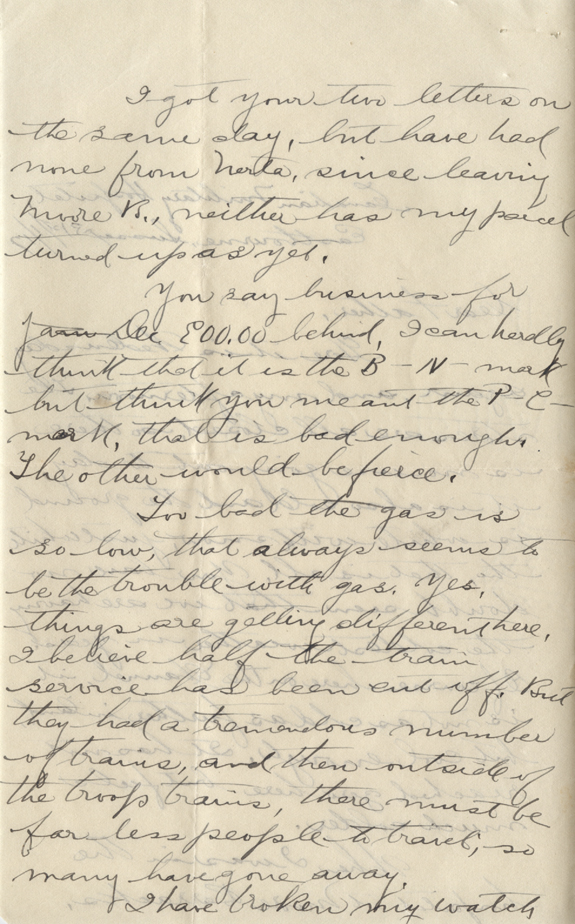 I got your two letters on
the same day, but have had
none from Nerta, since leaving
Moore B., neither has my parcel
turned up as yet.
You say business for
Jan Dec E00.00 behind, I can hardly
think that it is the B-N- mark
but think you meant the P-C-
mark, that is bad enough.
The other would be fierce.
Too bad the gas is
so low, that always seems to
be the trouble with gas. Yes,
things are getting different here,
I believe half the train
service has been cut off. But
they had a tremendous number
of trains, and then outside of
the troop trains, there must be
far less people to travel, so
many have gone away.
I have broken my watch